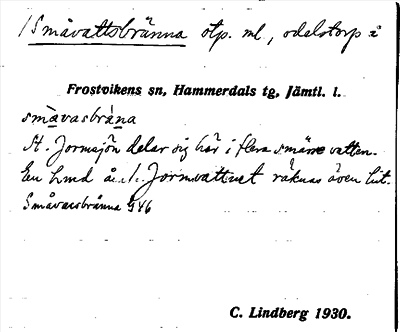 /Småvattsbränna otp. ml, odelstorp i
Frostvikens sn, Hammerdals tg, Jämtl. l.
småvasbräna
St. Jormsjön delar sig här i flera smärre vatten.
En hmd å. Jormvattnet räknas även hit.
Småvassbränna 946
C. Lindberg 1930.